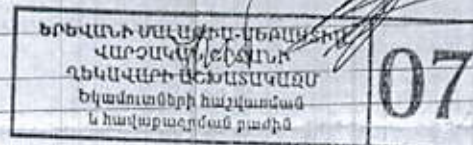 ԵՐԵՎԱՆԻ ՄԱԼԱԹԻԱ-ՍԵԲԱՍՏԻԱ
ՎԱՐՉԱԿԱՆ ՇՐՋԱՆԻ
ՂԵԿԱՎԱՐԻ ԱՇԽԱՏԱԿԱԶՄ
Եկամուտների հաշվառման
և հավաքագրման բաժին
07